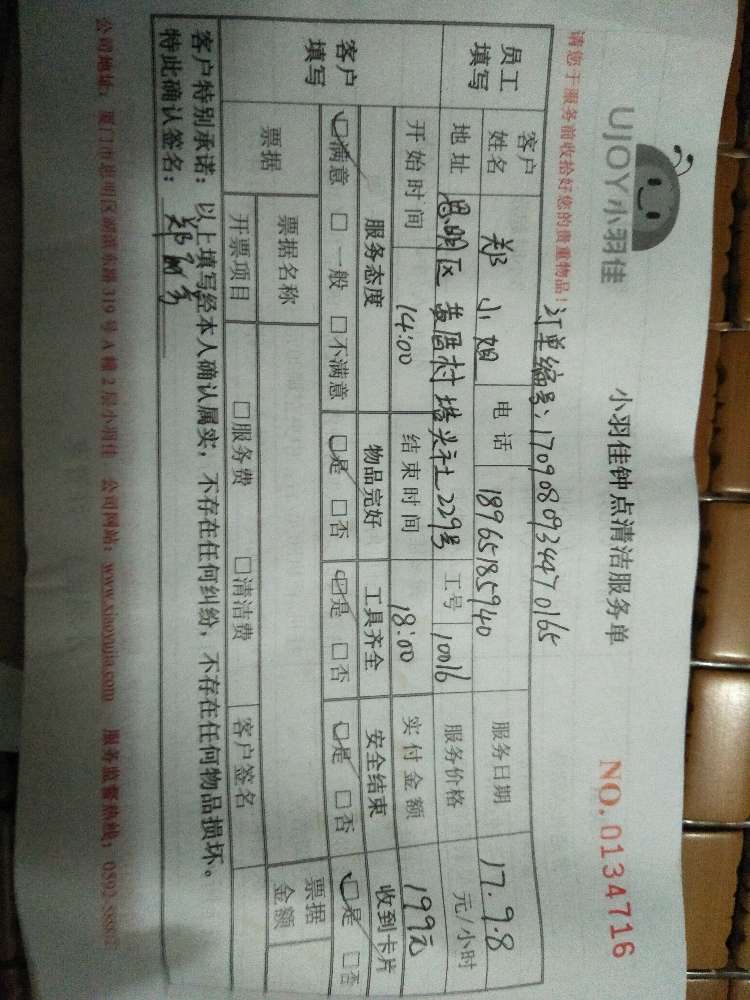 UJOY小羽佳
小羽佳钟点清洁服务单
NO.0134716
请您于服务前收拾好您的贵重物品！
订单编号：1709080934470165
员工填写
客户姓名 郑小姐 电话 18965185940 服务日期 17.9.8
地址 思明区黄厝村塔头社229号 工号 10016 服务价格 元/小时
开始时间 14:00 结束时间 18:00 实付金额 199元
客户填写
服务态度 物品完好 工具齐全 安全结束 收到卡片
□满意 □一般 □不满意 □是 □否 □是 □否 □是 □否 □是 □否
票据 票据名称 票据金额
开票项目 □服务费 □清洁费 客户签名
客户特别承诺：以上填写经本人确认属实，不存在任何纠纷，不存在任何物品损坏。
特此确认签名：郑
公司地址：厦门市思明区湖滨东路319号A幢2层小羽佳 公司网站：www.xiaoyujia.com 服务监督热线：0592-